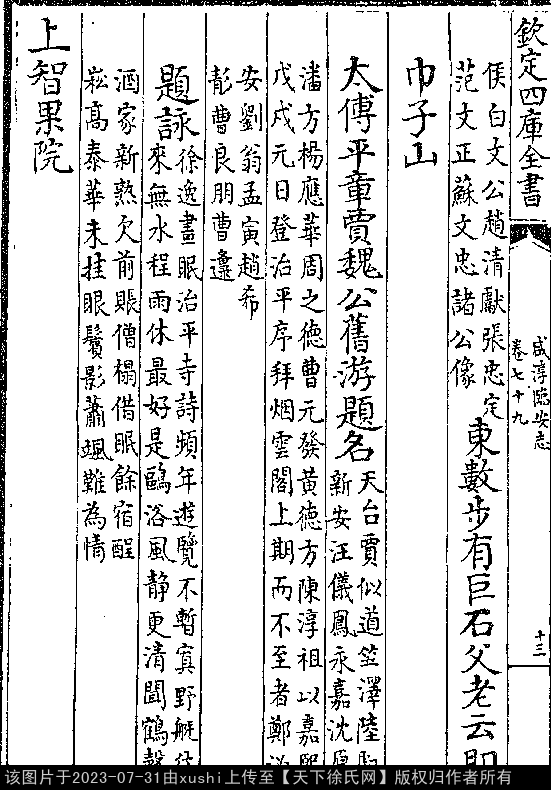 欽定四庫全書
咸淳臨安志
卷七十九
十三
侯白文公趙清獻張忠定
范文正蘇文忠諸公像
東數步有巨石父老云即
巾子山
太傅平章賈魏公舊游題名
天台賈似道笠澤陸
新安汪儀鳳永嘉沈
潘方楊應華周之德曹元發黃德方陳淳祖以嘉熙
戊戌元日登治平序拜烟雲閣上期而不至者鄭
安劉翁孟寅趙希
彭曹良朋曹邍
題詠
徐逸晝眠治平寺詩頻年遊覽不暫寘野艇
來無水程雨休最好是鷗浴風静更清聞鶴聲
酒家新熟欠前賬僧榻借眠餘宿酲
崧髙泰華未挂眼鬢影蕭颯難為情
上智果院
该图片于2023-07-31由xushi上传至【天下徐氏网】版权归作者所有